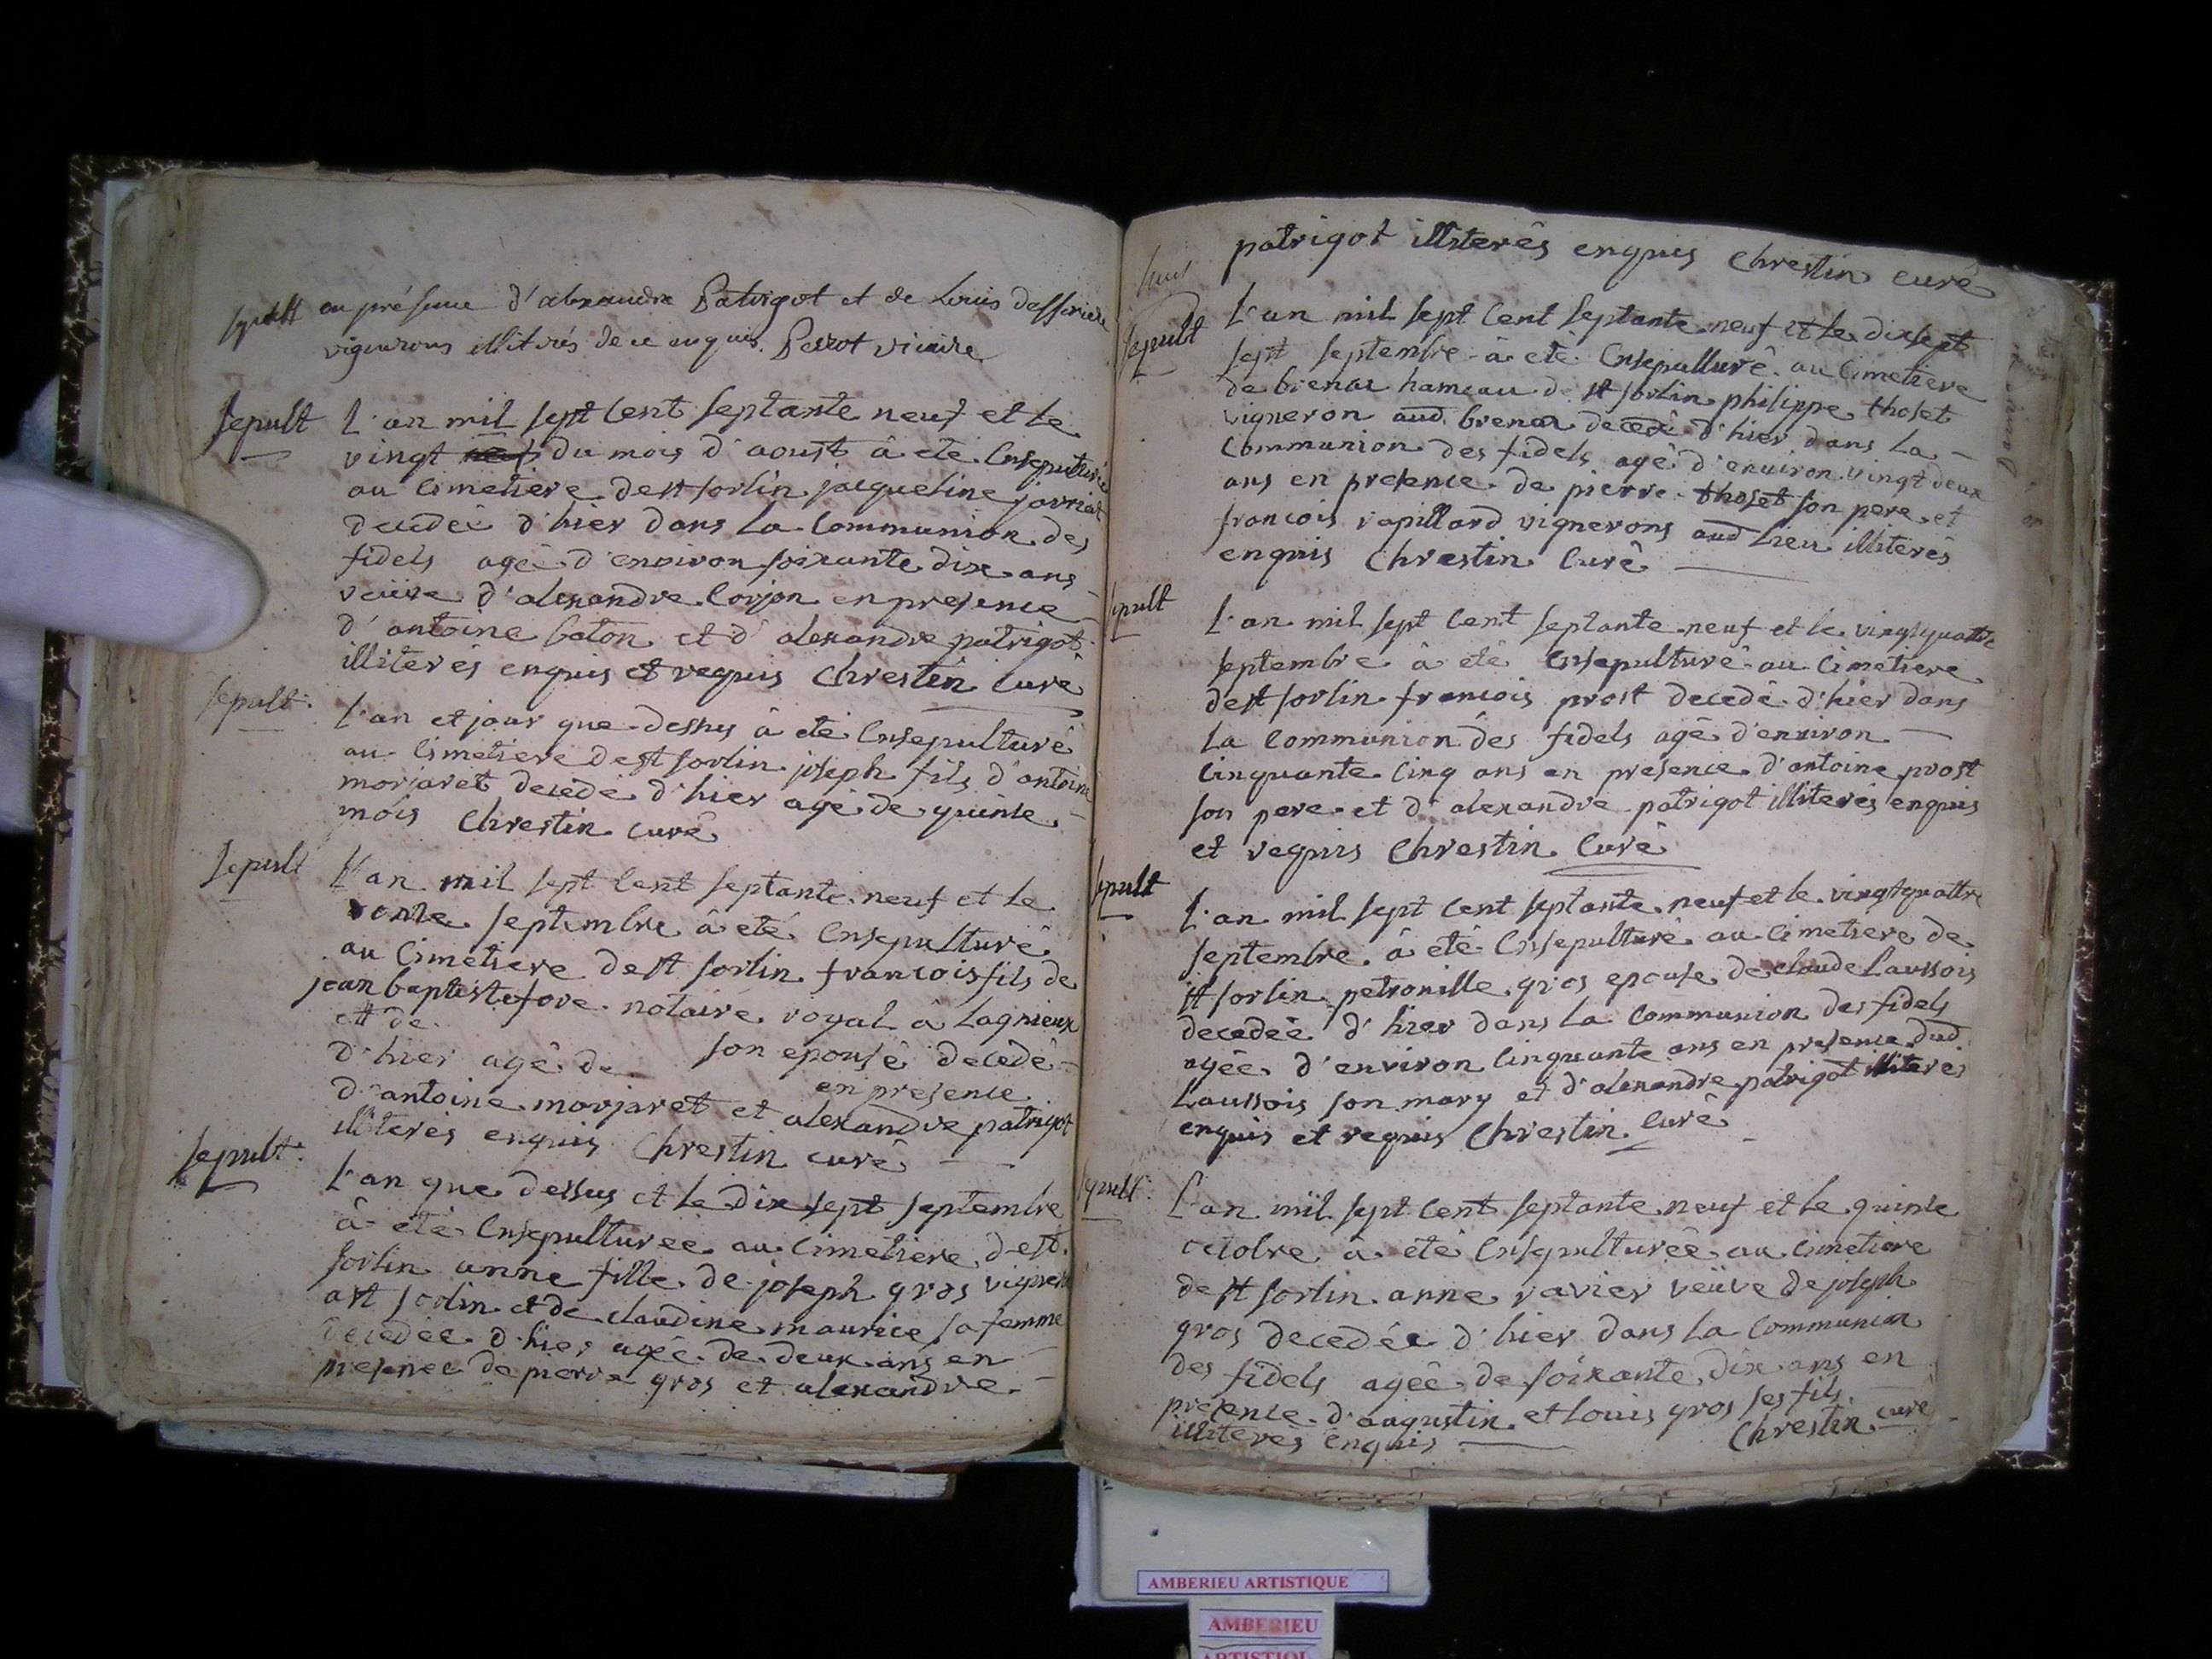 sepult en présence d'alexandre Patrigot et de Louis dessaried
vignerons illitérés de ce enquis. Perrot vicaire
Sepult L'an mil sept cent septante neuf et le
vingt du mois d'aoust à été ensepulturée
au cimetiere de st sorlin jacqueline jorriat
decedée d'hier dans la communion des
fidels agée d'environ soixante dix ans
veüve d'alexandre corjon en presence
d'antoine baton et d'alexandre patrigot
illiterés enquis et requis Chrestin curé
sepult. L'an et jour que dessus à été ensepulturé
au cimetiere de st sorlin joseph fils d'antoine
morjaret decedé d'hier agé de quinse
mois Chrestin curé
Sepult L'an mil sept cent septante neuf et le
onse septembre à été ensepulturé
au cimetiere de st sorlin francois fils de
jean baptiste fore notaire royal à lagnieux
et de son epouse decedé
d'hier agé de en presence
d'antoine morjaret et alexandre patrigot
illiterés enquis Chrestin curé
Sepult. L'an que dessus et le dix sept septembre
à été ensepulturee au cimetiere de st
sorlin anne fille de joseph gros vigneron
a st sorlin et de claudine maurice sa femme
decedée d'hier agée de deux ans en
presence de pierre gros et alexandre
patrigot illiterés enquis Chrestin curé
Sepult L'an mil sept cent septante neuf et le dix sept
sept septembre à été ensepulturé au cimetiere
de brenaz hameau de st sorlin philippe thoset
vigneron aud brenaz decedé d'hier dans la
communion des fidels agé d'environ vingt deux
ans en presence de pierre thoset son pere et
francois rapillard vignerons aud lieu illiterés
enquis Chrestin curé
sepult L'an mil sept cent septante neuf et le vingtquattre
septembre à été ensepulturé au cimetiere
de st sorlin francois prost decedé d'hier dans
la communion des fidels agé d'environ
cinquante cinq ans en presence d'antoine prost
son pere et d'alexandre patrigot illiterés enquis
et requis Chrestin curé
sepult L'an mil sept cent septante neuf et le vingtquattre
septembre à été ensepulturé au cimetiere de
st sorlin petronille gros epouse de claude Laussois
decedée d'hier dans la communion des fidels
agée d'environ cinquante ans en presence dud
Laussois son mary et d'alexandre patrigot illiterés
enquis et requis Chrestin curé
sepult. L'an mil sept cent septante neuf et le quinse
octobre à été ensepulturée au cimetiere
de st sorlin anne ravier veüve de joseph
gros decedée d'hier dans la communion
des fidels agée de soixante dix ans en
presence d'augustin et louis gros ses fils
illiteres enquis Chrestin curé
AMBERIEU ARTISTIQUE
AMBERIEU
ARTISTIQUE